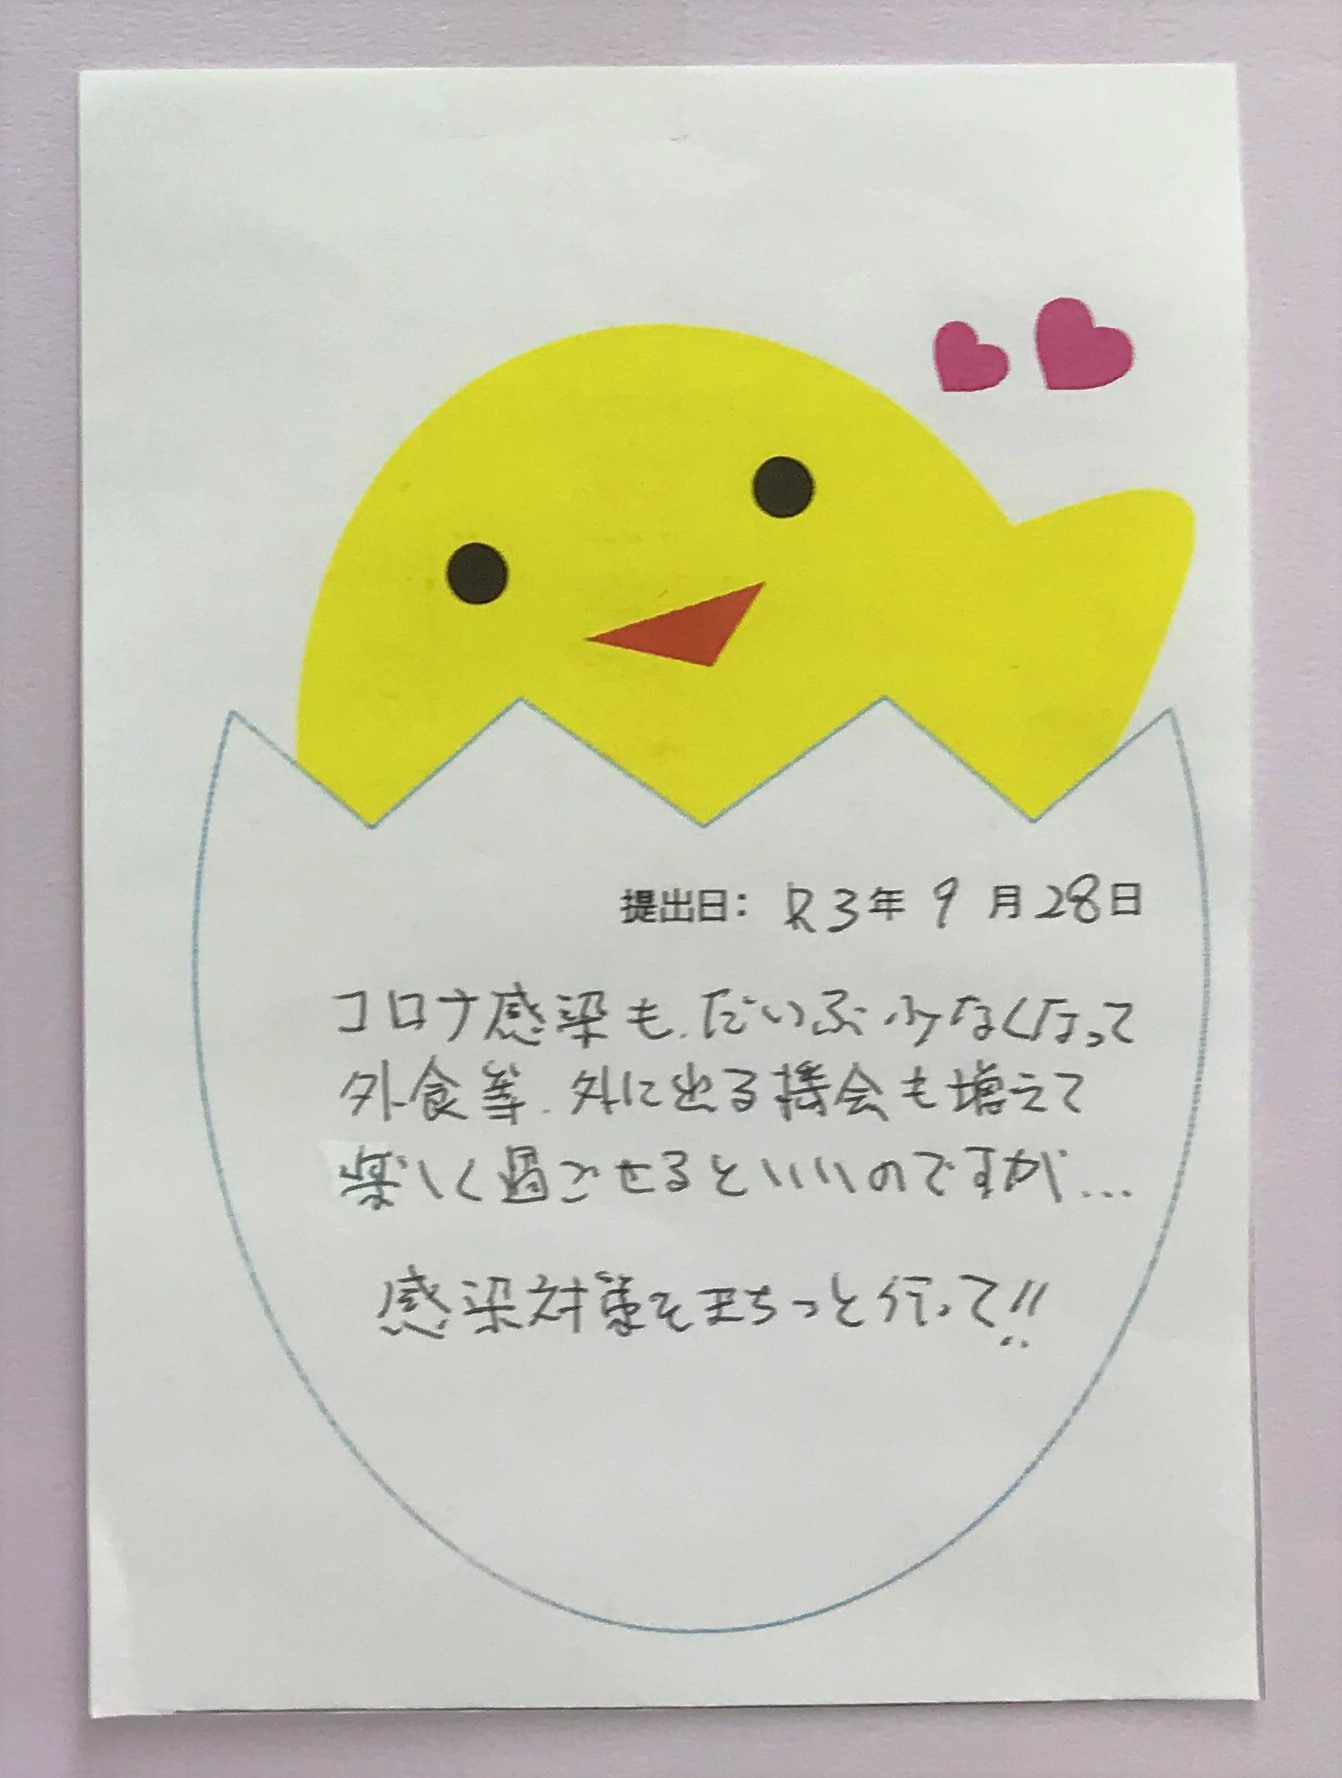 提出日: R3年9月28日
コロナ感染も、だいぶ少なくなって
外食等、外に出る機会も増えて
楽しく過ごせるといいのですが…
感染対策をきちっと行って!!